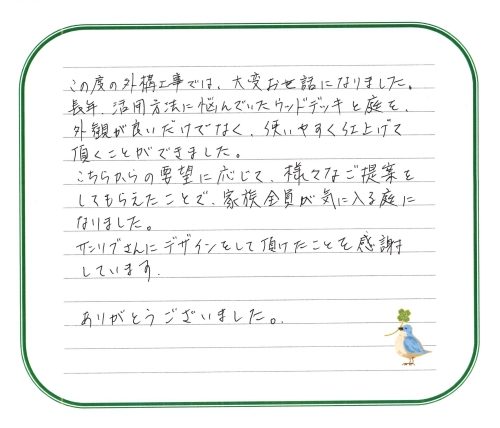 この度の外構工事では、大変お世話になりました。
長年、活用方法に悩んでいたウッドデッキと庭を、
外観が良いだけでなく、使いやすく仕上げて
頂くことができました。
こちらからの要望に応じて、様々なご提案を
してもらえたことで、家族全員が気に入る庭に
なりました。
サンリブさんにデザインをして頂けたことを感謝
しています.
ありがとうございました。